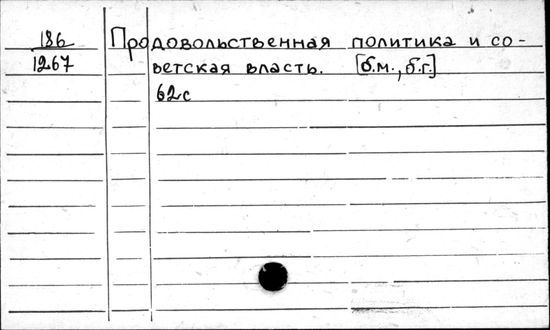 186 Продовольственная политика и со-
1267 ветская власть. [б.м., б.г.]
62с